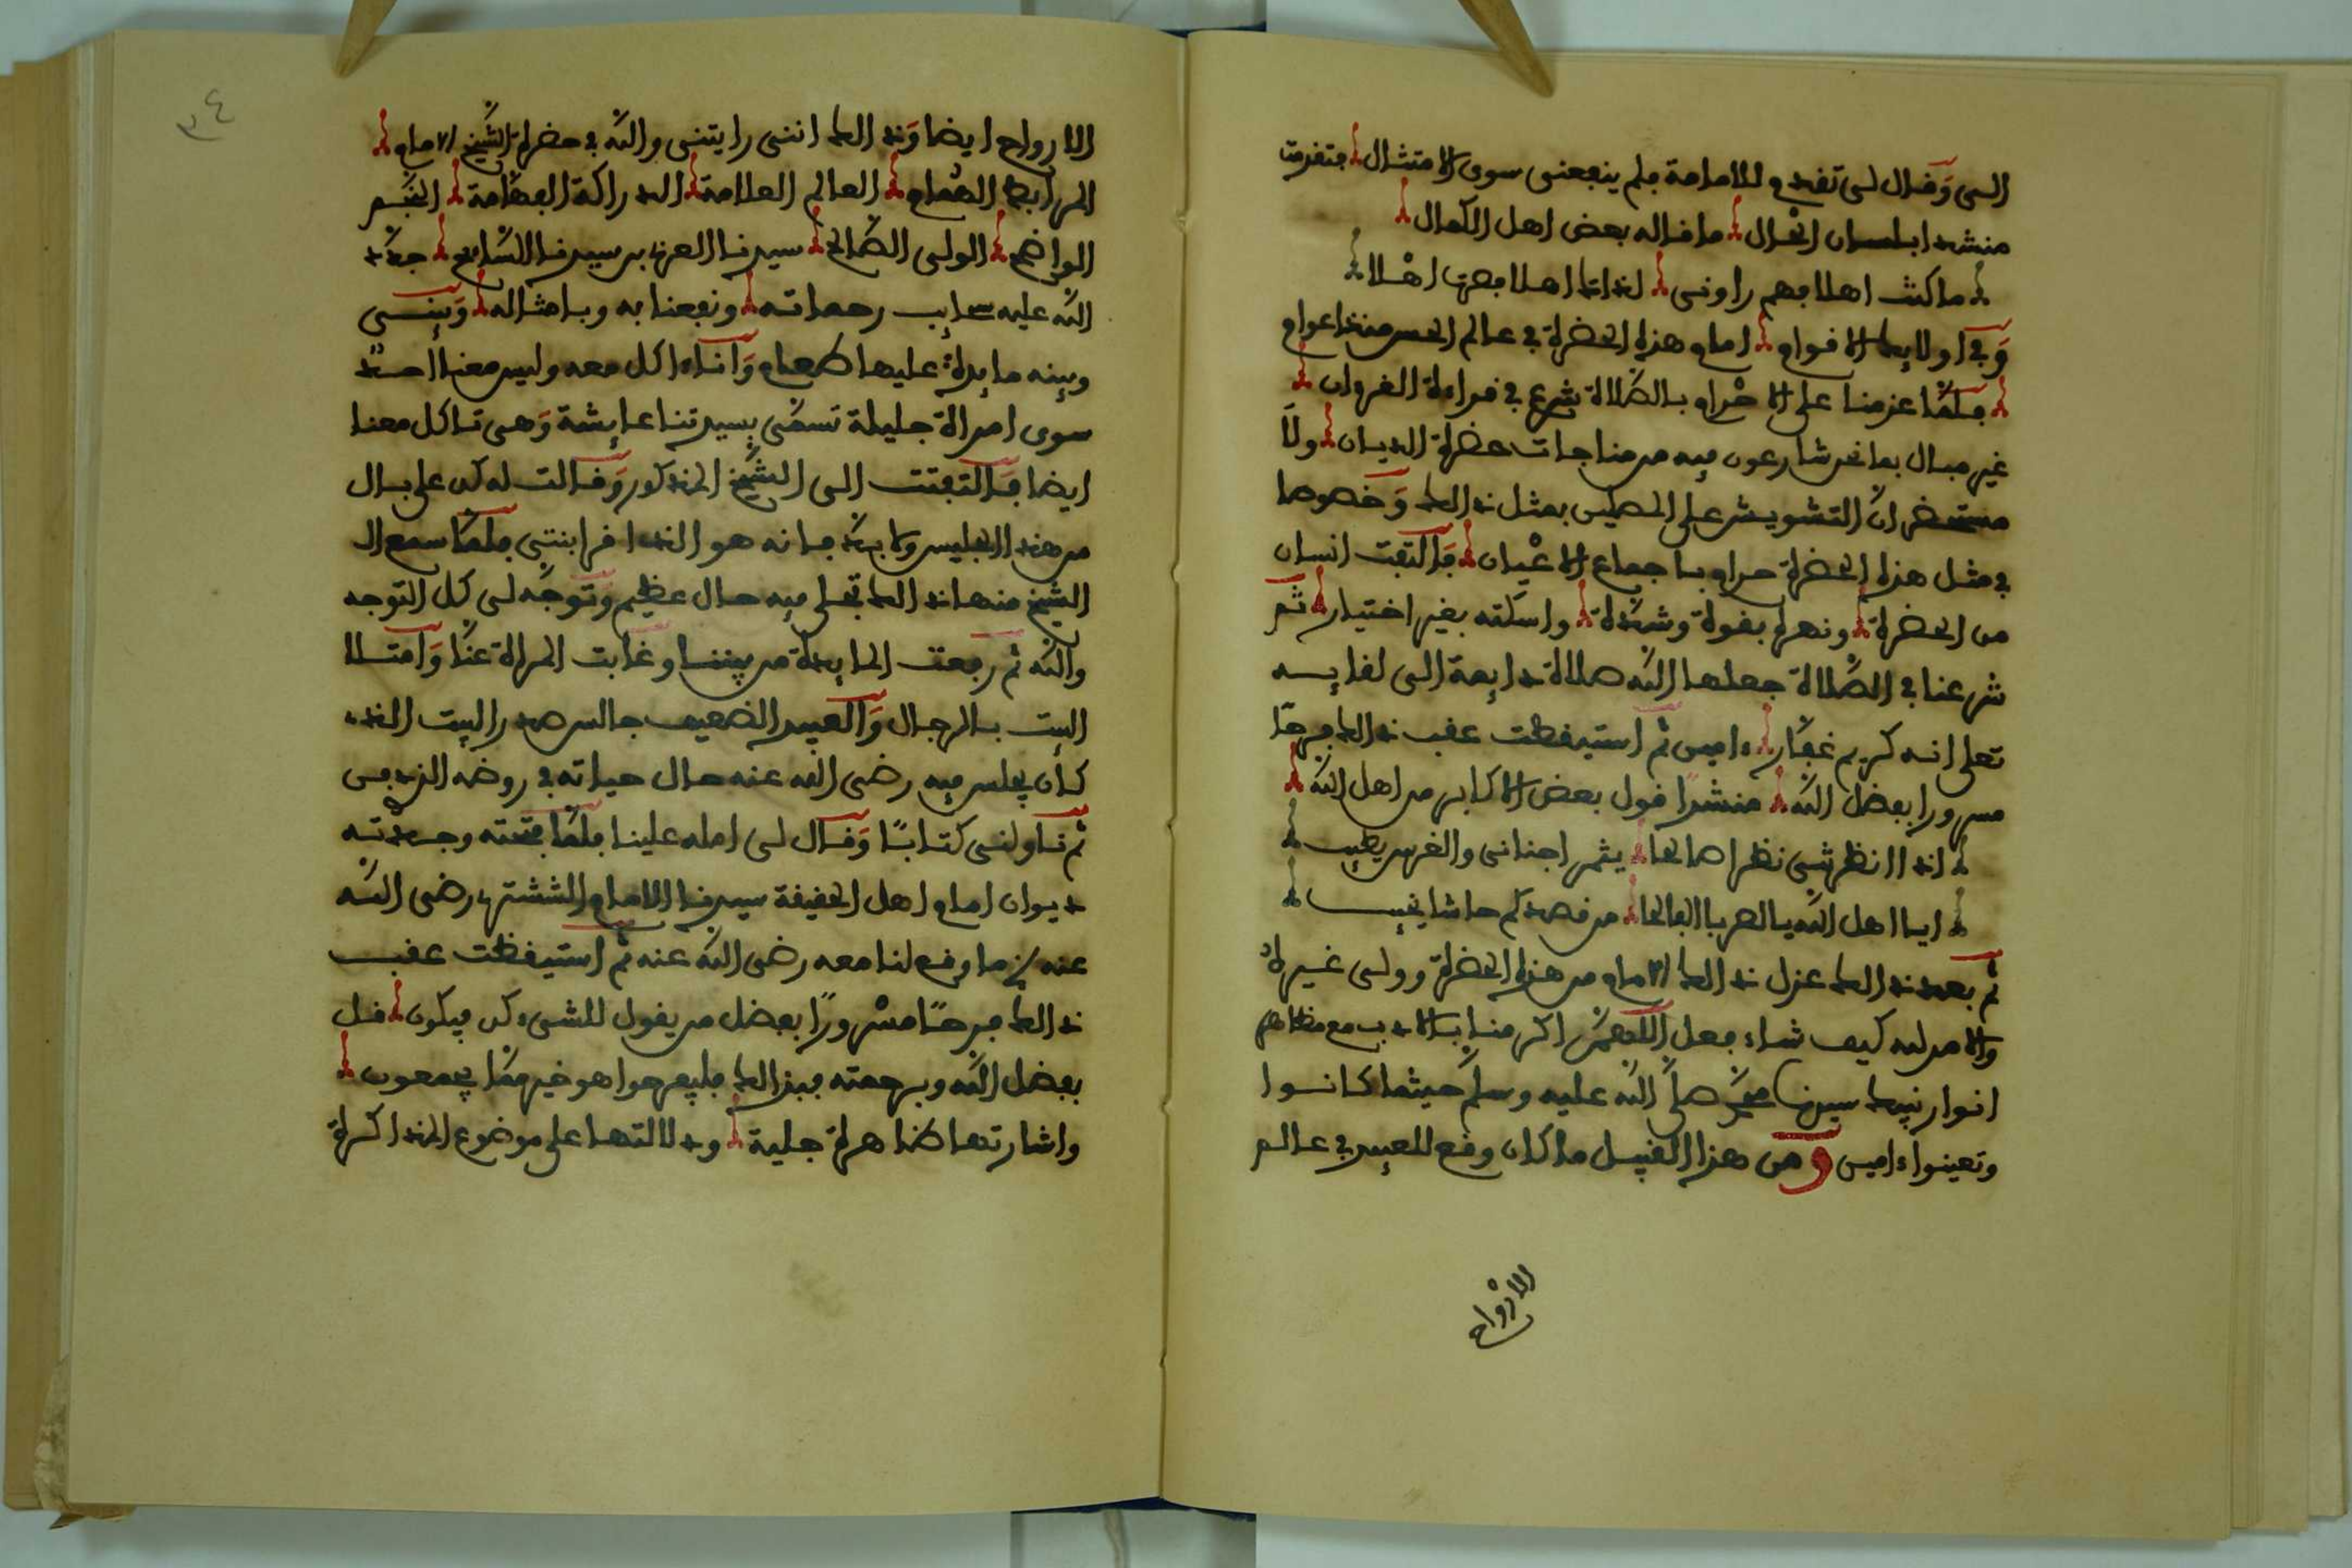 الى وقال لى تقدم للامامة فلم ينفعنى سوى الامتثال فتقدمت
منشدا بلسان الحال ما قاله بعض اهل الكمال
ما كنت اهلا فهم راونى لذاك اهلا فصرت اهلا
وفى اولايك الاقوام امام هذه الحضرة فى عالم الحس من
فلما عزمنا على الاحرام بالصلاة شرع فى قراءة القرءان
غير مبال بما نحن شارعون فيه من مناجات حضرة الديان ولا
مستحضر ان التشويش على المصلين بمثل ذالك وخصوصا
فى مثل هذه الحضرة حرام باجماع الاعيان فالتفت انسان
من الحضرة ونهره بقوة وشدة واسكته بغير اختياره ثم
شرعنا فى الصلاة جعلها الله صلاة دايمة الى لقايه
تعلى انه كريم غفار ءامين ثم استيقظت عقب ذالك فرحا
مسرورا بفضل الله منشدا قول بعض الاكابر من اهل الله
اذا نظرتنى نظرا صالحا يثمر اجنانى والغرس يطيب
ايا اهل الله يا العرب الفالحا من قصدكم حاشا يخيب
ثم بعد ذالك عزل ذالك الامام من هذه الحضرة وولى غيره لان
والامر لله كيف شاء فعل اللهم اكرمنا بالادب مع مظاهر
انوار نبيك سيدنا محمد صلى الله عليه وسلم حيثما كانوا
وتعينوا ءامين ومن هذا القبيل ما كان وقع للعبيد فى عالم
الارواح
٣٤
الارواح ايضا وذالك اننى رايتنى والله فى حضرة الشيخ الامام
المرابط الهمام العالم العلامة الدراكة الفهامة النجم
الواضح الولى الصالح سيدنا العربى بن سيدنا السايح جدد
الله عليه سحايب رحماته ونفعنا به وبامثاله وبينى
وبينه مايدة عليها طعام وانا ءاكل معه وليس معنا احد
سوى امراة جليلة تسمى بسيدتنا عايشة وهى تاكل معنا
ايضا فالتفتت الى الشيخ المذكور وقالت له كن على بال
من هذا الجليس ولابد فانه هو الذى اقرا بنتى فلما سمع ال
الشيخ منها ذالك تجلى فيه حال عظيم وتوجه لى كل التوجه
والله ثم رفعت المايدة من بيننا وغابت المراة عنا وامتلا
البيت بالرجال والعبيد الضعيف جالس صدر البيت الذى
كان يجلس فيه رضى الله عنه حال حياته فى روضه
ثم ناولنى كتابا وقال لى امله علينا فلما فتحته وجدته
ديوان امام اهل الحقيقة سيدنا الامام الششترى رضى الله
عنه ما وقع لنا معه رضى الله عنه ثم استيقظت عقب
ذالك فرحا مسرورا بفضل من يقول للشىء كن فيكون قل
بفضل الله وبرحمته فبذالك فليفرحوا هو خير مما يجمعون
واشارتها ظاهرة جلية ودلالتها على موضوع المذاكرة